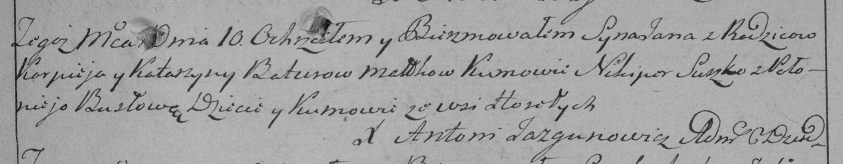 Tegoż Mca Dnia 10. Ochrzciłem y Bierzmowałem Syna Jana z Rodzicow
Karpieja y Katarzyny Baturow małżkow Kumowie Nikipor Suszko z Poło-
niejo Busłową Dziecie y Kumowie ze wsi Hosełych
X Antoni Jazgunowicz Adm: C: Dzied-